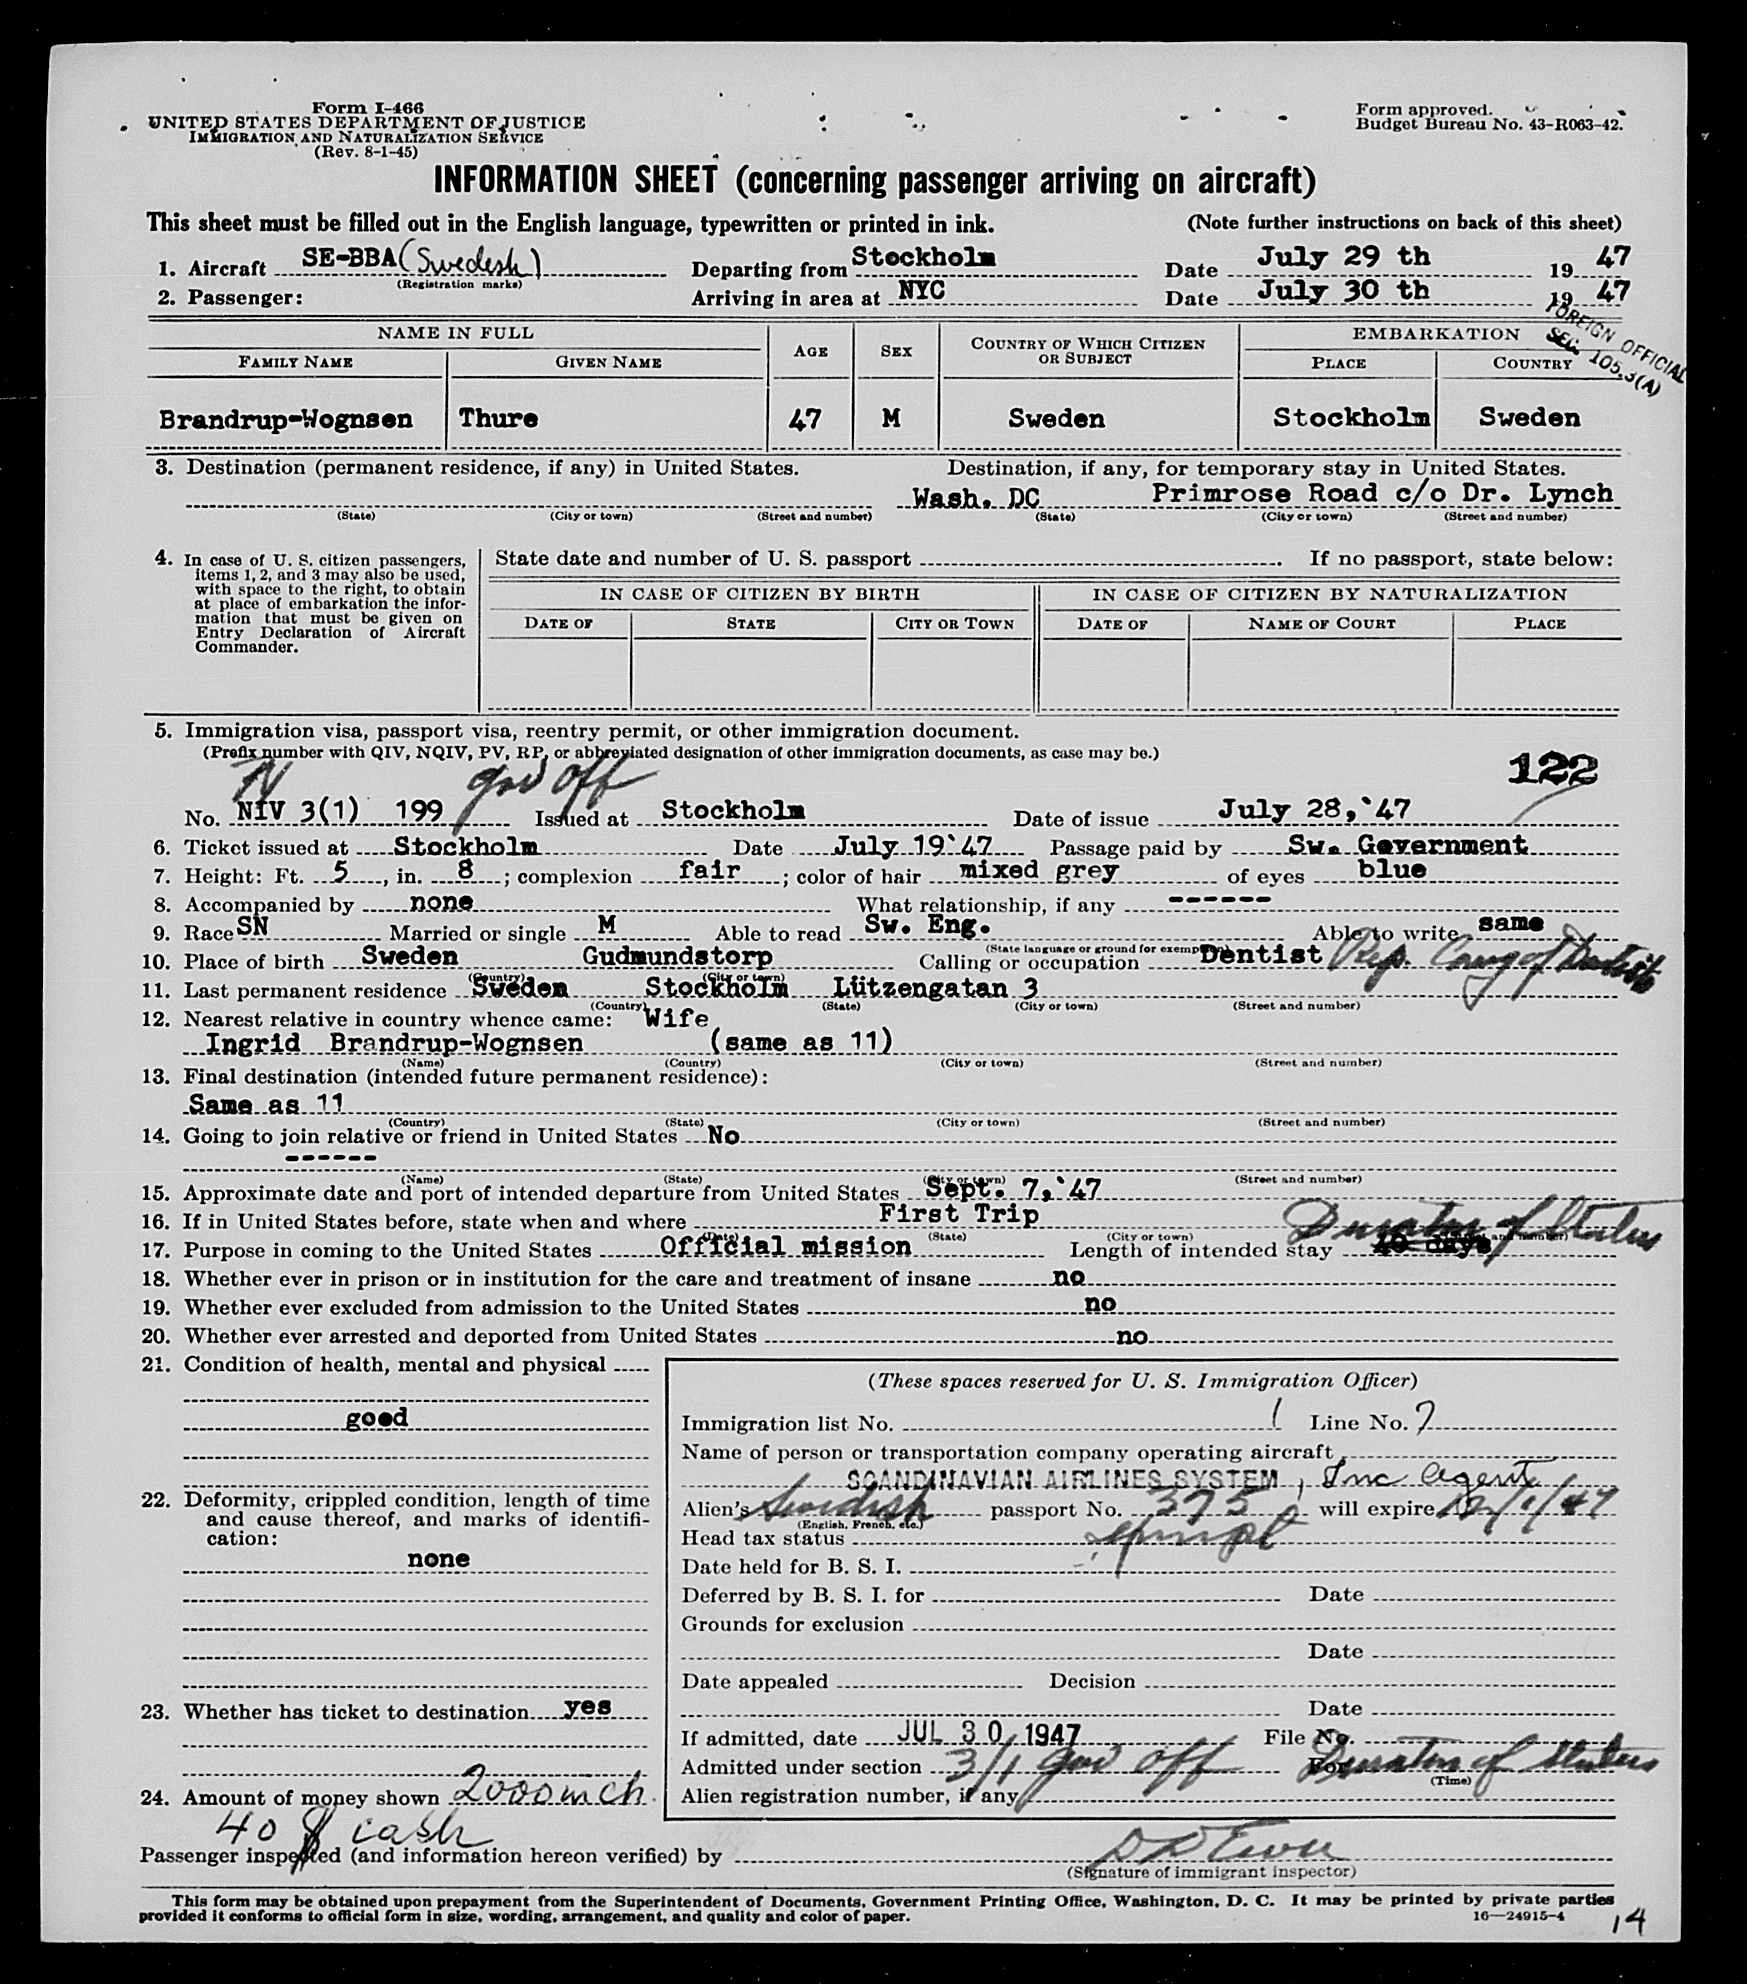 Form I-466
UNITED STATES DEPARTMENT OF JUSTICE
IMMIGRATION AND NATURALIZATION SERVICE
(Rev. 8-1-45)
Form approved.
Budget Bureau No. 43-R063-42.
INFORMATION SHEET (concerning passenger arriving on aircraft)
This sheet must be filled out in the English language, typewritten or printed in ink. (Note further instructions on back of this sheet)
1. Aircraft SE-BBA (Swedish) Departing from Stockholm Date July 29 th 19 47
(Registration marks)
2. Passenger: Arriving in area at NYC Date July 30 th 19 47
FOREIGN OFFICIAL
SEC. 105.3(A)
NAME IN FULL AGE SEX COUNTRY OF WHICH CITIZEN OR SUBJECT EMBARKATION
FAMILY NAME GIVEN NAME PLACE COUNTRY
Brandrup-Wognsen Thure 47 M Sweden Stockholm Sweden
3. Destination (permanent residence, if any) in United States. Destination, if any, for temporary stay in United States.
Wash. DC Primrose Road c/o Dr. Lynch
(State) (City or town) (Street and number) (State) (City or town) (Street and number)
4. In case of U. S. citizen passengers, items 1, 2, and 3 may also be used, with space to the right, to obtain at place of embarkation the information that must be given on Entry Declaration of Aircraft Commander.
State date and number of U. S. passport . If no passport, state below:
IN CASE OF CITIZEN BY BIRTH IN CASE OF CITIZEN BY NATURALIZATION
DATE OF STATE CITY OR TOWN DATE OF NAME OF COURT PLACE
5. Immigration visa, passport visa, reentry permit, or other immigration document.
(Prefix number with QIV, NQIV, PV, RP, or abbreviated designation of other immigration documents, as case may be.)
122
gov off
No. NIV 3(1) 199 Issued at Stockholm Date of issue July 28,'47
6. Ticket issued at Stockholm Date July 19'47 Passage paid by Sw. Government
7. Height: Ft. 5, in. 8; complexion fair; color of hair mixed grey of eyes blue
8. Accompanied by none What relationship, if any ------
9. Race SN Married or single M Able to read Sw. Eng. Able to write same
(State language or ground for exemption)
10. Place of birth Sweden Gudmundstorp Calling or occupation Dentist
(Country) (City or town)
11. Last permanent residence Sweden Stockholm Lützengatan 3
(Country) (State) (City or town) (Street and number)
12. Nearest relative in country whence came: Wife
Ingrid Brandrup-Wognsen (same as 11)
(Name) (Country) (City or town) (Street and number)
13. Final destination (intended future permanent residence):
Same as 11
(Country) (State) (City or town) (Street and number)
14. Going to join relative or friend in United States No
------
(Name) (State) (City or town) (Street and number)
15. Approximate date and port of intended departure from United States Sept. 7,'47
16. If in United States before, state when and where First Trip
(Date) (State) (City or town) (Street and number)
Duration of Status
17. Purpose in coming to the United States Official mission Length of intended stay 40 days
18. Whether ever in prison or in institution for the care and treatment of insane no
19. Whether ever excluded from admission to the United States no
20. Whether ever arrested and deported from United States no
21. Condition of health, mental and physical
good
22. Deformity, crippled condition, length of time and cause thereof, and marks of identification:
none
23. Whether has ticket to destination yes
24. Amount of money shown 2000 in ch.
40 $ cash
(These spaces reserved for U. S. Immigration Officer)
Immigration list No. 1 Line No. 7
Name of person or transportation company operating aircraft
SCANDINAVIAN AIRLINES SYSTEM, Inc Agent
Alien's Swedish passport No. 375 will expire 12/1/47
(English, French, etc.)
Head tax status exempt
Date held for B. S. I.
Deferred by B. S. I. for Date
Grounds for exclusion
Date
Date appealed Decision
Date
If admitted, date JUL 30 1947 File No.
Admitted under section 3/1 gov off For Duration of Status
(Time)
Alien registration number, if any
Passenger inspected (and information hereon verified) by
(Signature of immigrant inspector)
This form may be obtained upon prepayment from the Superintendent of Documents, Government Printing Office, Washington, D. C. It may be printed by private parties
provided it conforms to official form in size, wording, arrangement, and quality and color of paper. 16—24915-4
14